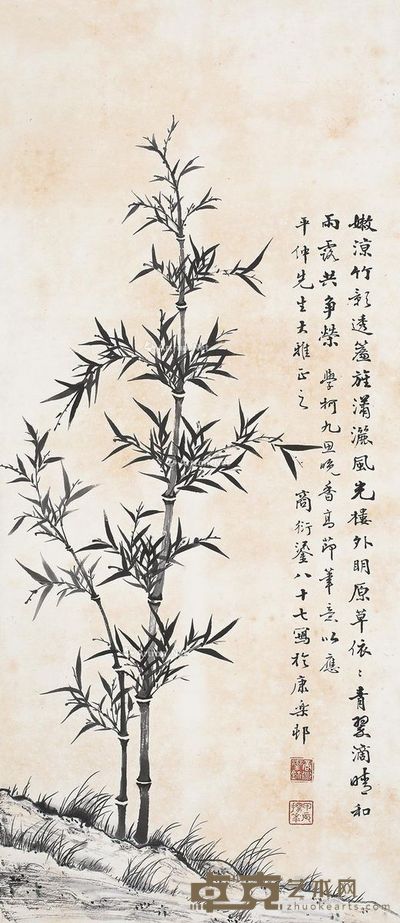 嫩涼竹影透簷旌瀟灑風光樓外明原草依〻青翠滴晴和
雨露共爭榮 學柯九思晚香高節筆意以應
平仲先生大雅正之
商衍鎏八十七寫於康樂邨
甲辰探花
卓克艺术网
zhuokearts.com